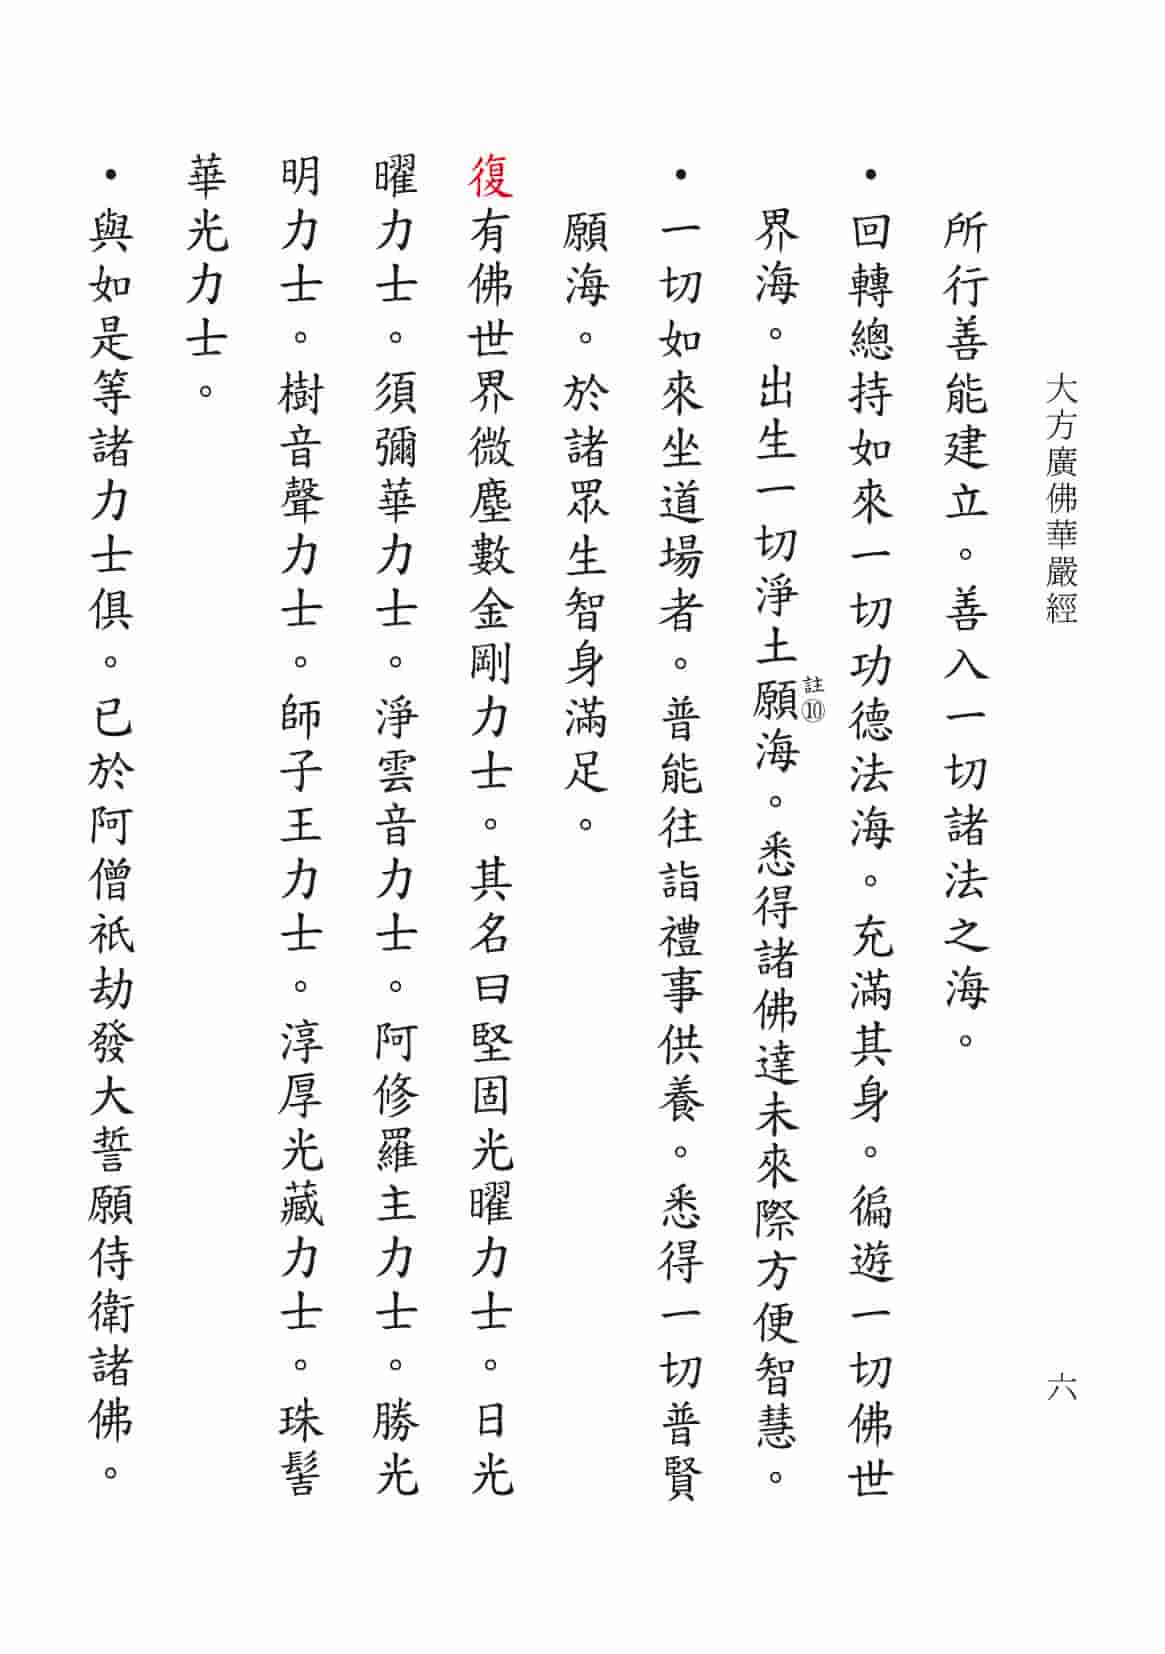 大方廣佛華嚴經
六
所行善能建立。善入一切諸法之海。
•回轉總持如來一切功德法海。充滿其身。徧遊一切佛世
界海。出生一切淨土願海。悉得諸佛達未來際方便智慧。
註⑩
•一切如來坐道場者。普能往詣禮事供養。悉得一切普賢
願海。於諸眾生智身滿足。
復有佛世界微塵數金剛力士。其名曰堅固光曜力士。日光
曜力士。須彌華力士。淨雲音力士。阿修羅主力士。勝光
明力士。樹音聲力士。師子王力士。淳厚光藏力士。珠髻
華光力士。
•與如是等諸力士俱。已於阿僧祇劫發大誓願侍衛諸佛。